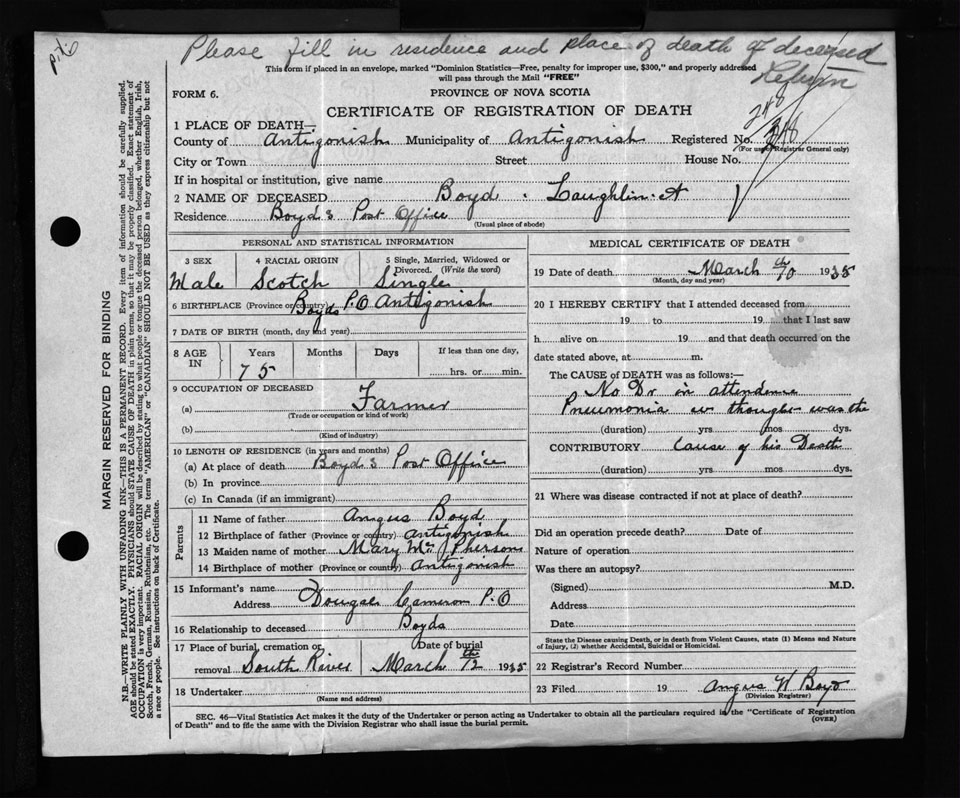 Please fill in residence and place of death of deceased
This form if placed in an envelope, marked "Dominion Statistics—Free, penalty for improper use, $300," and properly addressed
will pass through the Mail "FREE"
FORM 6.
PROVINCE OF NOVA SCOTIA
CERTIFICATE OF REGISTRATION OF DEATH
248
1 PLACE OF DEATH—
County of Antigonish Municipality of Antigonish Registered No. 318
(For use of Registrar General only)
City or Town Street House No.
If in hospital or institution, give name
2 NAME OF DECEASED Boyd . Laughlin . A
Residence Boyd's Post Office
(Usual place of abode)
PERSONAL AND STATISTICAL INFORMATION
3 SEX 4 RACIAL ORIGIN 5 Single, Married, Widowed or Divorced. (Write the word)
Male Scotch Single
6 BIRTHPLACE (Province or country) Boyds P.O Antigonish
7 DATE OF BIRTH (month, day and year)
8 AGE IN Years Months Days If less than one day,
75 hrs. or min.
9 OCCUPATION OF DECEASED
(a) Farmer
(Trade or occupation or kind of work)
(b)
(Kind of industry)
10 LENGTH OF RESIDENCE (in years and months)
(a) At place of death Boyd's Post Office
(b) In province
(c) In Canada (if an immigrant)
Parents
11 Name of father Angus Boyd
12 Birthplace of father (Province or country) Antigonish
13 Maiden name of mother Mary Mc Pherson
14 Birthplace of mother (Province or country) Antigonish
15 Informant's name
Address Dougal Cameron P.O
16 Relationship to deceased Boyds
17 Place of burial, cremation or Date of burial
removal South River March 12th 1935
18 Undertaker
(Name and address)
MEDICAL CERTIFICATE OF DEATH
19 Date of death March 10 1935
(Month, day and year)
20 I HEREBY CERTIFY that I attended deceased from
19 to 19 that I last saw
h alive on 19 and that death occurred on the
date stated above, at m.
The CAUSE of DEATH was as follows:—
No Dr in attendence
Pneumonia thought was the
(duration) yrs mos dys.
CONTRIBUTORY Cause of his Death
(duration) yrs mos dys.
21 Where was disease contracted if not at place of death?
Did an operation precede death? Date of
Nature of operation
Was there an autopsy?
(Signed) M.D.
Address
Date
State the Disease causing Death, or in death from Violent Causes, state (1) Means and Nature
of Injury, (2) whether Accidental, Suicidal or Homicidal.
22 Registrar's Record Number
23 Filed 19 Angus W Boyd
(Division Registrar)
SEC. 46—Vital Statistics Act makes it the duty of the Undertaker or person acting as Undertaker to obtain all the particulars required in the "Certificate of Registration
of Death" and to file the same with the Division Registrar who shall issue the burial permit.
(OVER)
MARGIN RESERVED FOR BINDING
N.B.—WRITE PLAINLY WITH UNFADING INK—THIS IS A PERMANENT RECORD. Every item of information should be carefully supplied.
AGE should be stated EXACTLY. PHYSICIANS should STATE CAUSE OF DEATH in plain terms, so that it may be properly classified. Exact statement of
OCCUPATION is very important. RACIAL ORIGIN will be described by stating to what people or tongue the deceased person belonged, whether English, Irish,
Scotch, French, German, Russian, Ruthenian, etc. The terms "AMERICAN" or "CANADIAN" SHOULD NOT BE USED as they express citizenship but not
a race or people. See instructions on back of Certificate.